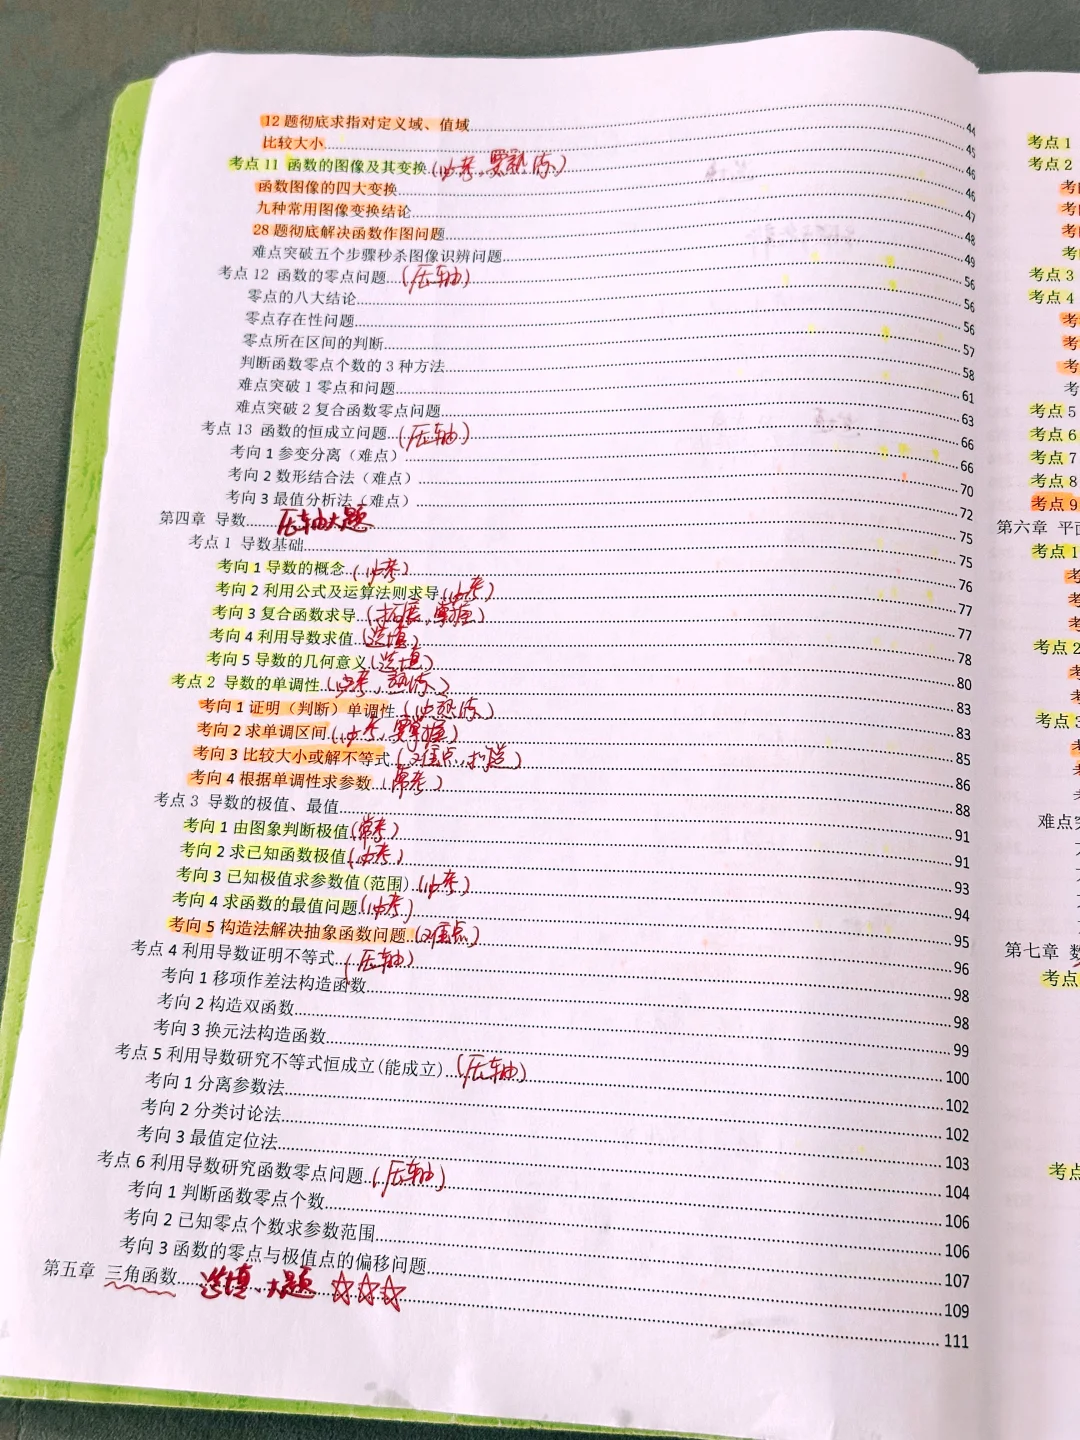 12题彻底求指对定义域、值域 44
比较大小 45
考点11 函数的图像及其变换 (必考,要熟练) 46
函数图像的四大变换 46
九种常用图像变换结论 47
28题彻底解决函数作图问题 48
难点突破五个步骤秒杀图像识辨问题 49
考点12 函数的零点问题 (压轴) 56
零点的八大结论 56
零点存在性问题 56
零点所在区间的判断 57
判断函数零点个数的3种方法 58
难点突破1零点和问题 61
难点突破2复合函数零点问题 63
考点13 函数的恒成立问题 (压轴) 66
考向1参变分离（难点） 66
考向2数形结合法（难点） 70
考向3最值分析法（难点） 72
第四章 导数 压轴大题 75
考点1 导数基础 75
考向1导数的概念 (必考) 76
考向2利用公式及运算法则求导 (必考) 77
考向3复合函数求导 (拓展,掌握) 77
考向4利用导数求值 (选填) 78
考向5导数的几何意义 (选填) 80
考点2 导数的单调性 (必考,熟练) 83
考向1证明（判断）单调性 (必熟练) 83
考向2求单调区间 (必考,要掌握) 85
考向3比较大小或解不等式 86
考向4根据单调性求参数 (常考) 88
考点3 导数的极值、最值 91
考向1由图象判断极值 (常考) 91
考向2求已知函数极值 (必考) 93
考向3已知极值求参数值(范围) (必考) 94
考向4求函数的最值问题 (必考) 95
考向5构造法解决抽象函数问题 (难点) 96
考点4利用导数证明不等式 (压轴) 98
考向1移项作差法构造函数 98
考向2构造双函数 99
考向3换元法构造函数 100
考点5利用导数研究不等式恒成立(能成立) (压轴) 102
考向1分离参数法 102
考向2分类讨论法 103
考向3最值定位法 104
考点6利用导数研究函数零点问题 (压轴) 106
考向1判断函数零点个数 106
考向2已知零点个数求参数范围 107
考向3函数的零点与极值点的偏移问题 109
第五章 三角函数 选填、大题 ☆☆☆ 111
考点1
考点2
考点3
考点4
考点5
考点6
考点7
考点8
考点9
第六章 平
考点1
考点2
考点3
第七章
考点
考点